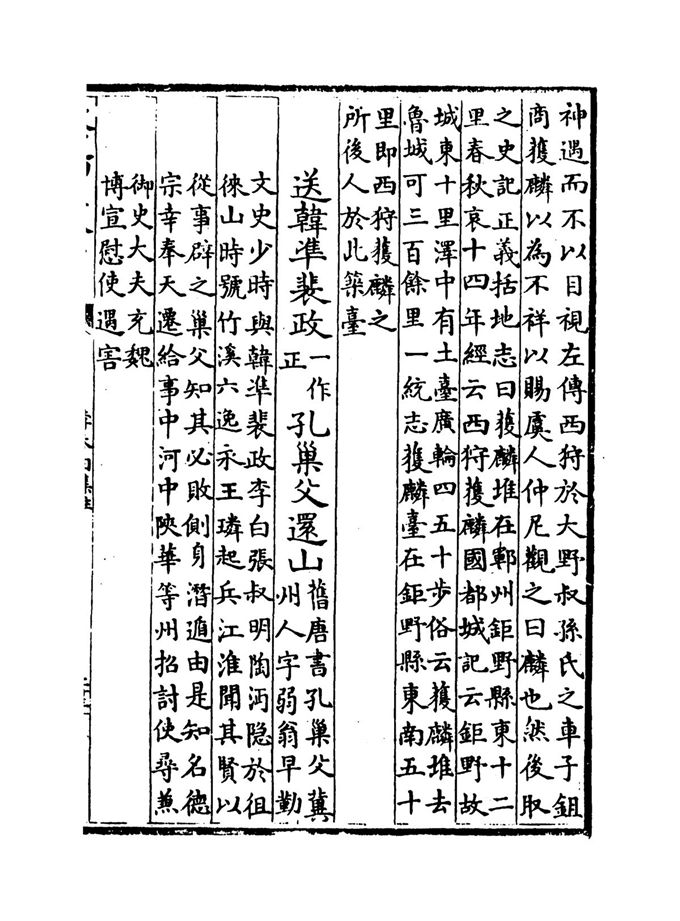 神遇而不以目視左傳西狩於大野叔孫氏之車子鉏
商獲麟以為不祥以賜虞人仲尼觀之曰麟也然後取
之史記正義括地志曰獲麟堆在鄆州鉅野縣東十二
里春秋哀十四年經云西狩獲麟國都城記云鉅野故
城東十里澤中有土臺廣輪四五十步俗云獲麟堆去
魯城可三百餘里一統志獲麟臺在鉅野縣東南五十
里即西狩獲麟之
所後人於此築臺
送韓準裴政一作正孔巢父還山
舊唐書孔巢父冀
州人字弱翁早勤
文史少時與韓準裴政李白張叔明陶沔隐於徂
徠山時號竹溪六逸永王璘起兵江淮聞其賢以
從事辟之巢父知其必敗側身潛遁由是知名德
宗幸奉天遷給事中河中陝華等州招討使尋兼
御史大夫充魏
博宣慰使遇害
李太白集註